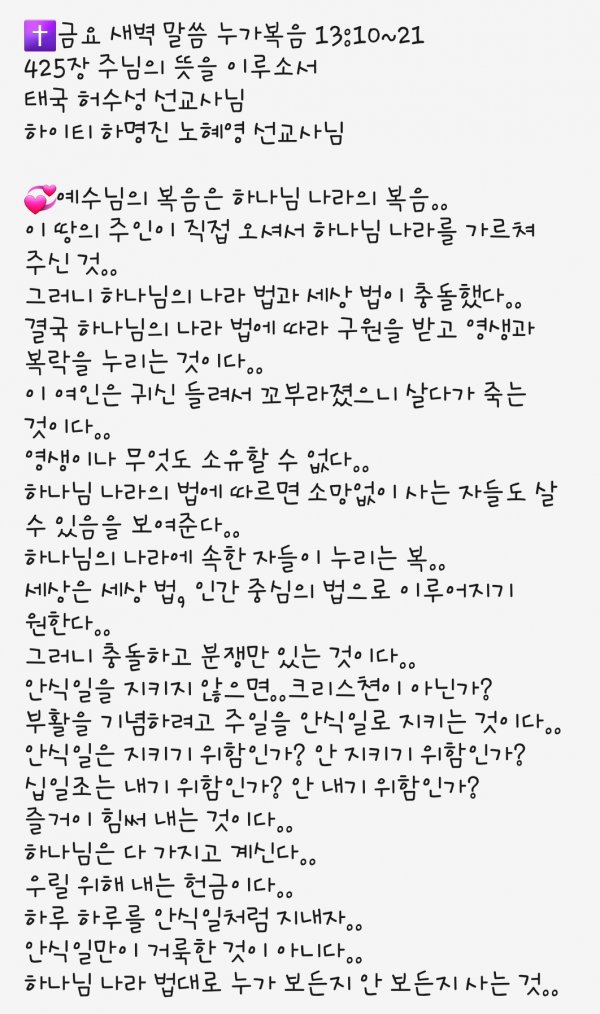 ✝️금요 새벽 말씀 누가복음 13:10~21
425장 주님의 뜻을 이루소서
태국 허수성 선교사님
하이티 하명진 노혜영 선교사님
💞예수님의 복음은 하나님 나라의 복음..
이 땅의 주인이 직접 오셔서 하나님 나라를 가르쳐
주신 것..
그러니 하나님의 나라 법과 세상 법이 충돌했다..
결국 하나님의 나라 법에 따라 구원을 받고 영생과
복락을 누리는 것이다..
이 여인은 귀신 들려서 꼬부라졌으니 살다가 죽는
것이다..
영생이나 무엇도 소유할 수 없다..
하나님 나라의 법에 따르면 소망없이 사는 자들도 살
수 있음을 보여준다..
하나님의 나라에 속한 자들이 누리는 복..
세상은 세상 법, 인간 중심의 법으로 이루어지기
원한다..
그러니 충돌하고 분쟁만 있는 것이다..
안식일을 지키지 않으면..크리스천이 아닌가?
부활을 기념하려고 주일을 안식일로 지키는 것이다..
안식일은 지키기 위함인가? 안 지키기 위함인가?
십일조는 내기 위함인가? 안 내기 위함인가?
즐거이 힘써 내는 것이다..
하나님은 다 가지고 계신다..
우릴 위해 내는 헌금이다..
하루 하루를 안식일처럼 지내자..
안식일만이 거룩한 것이 아니다..
하나님 나라 법대로 누가 보든지 안 보든지 사는 것..